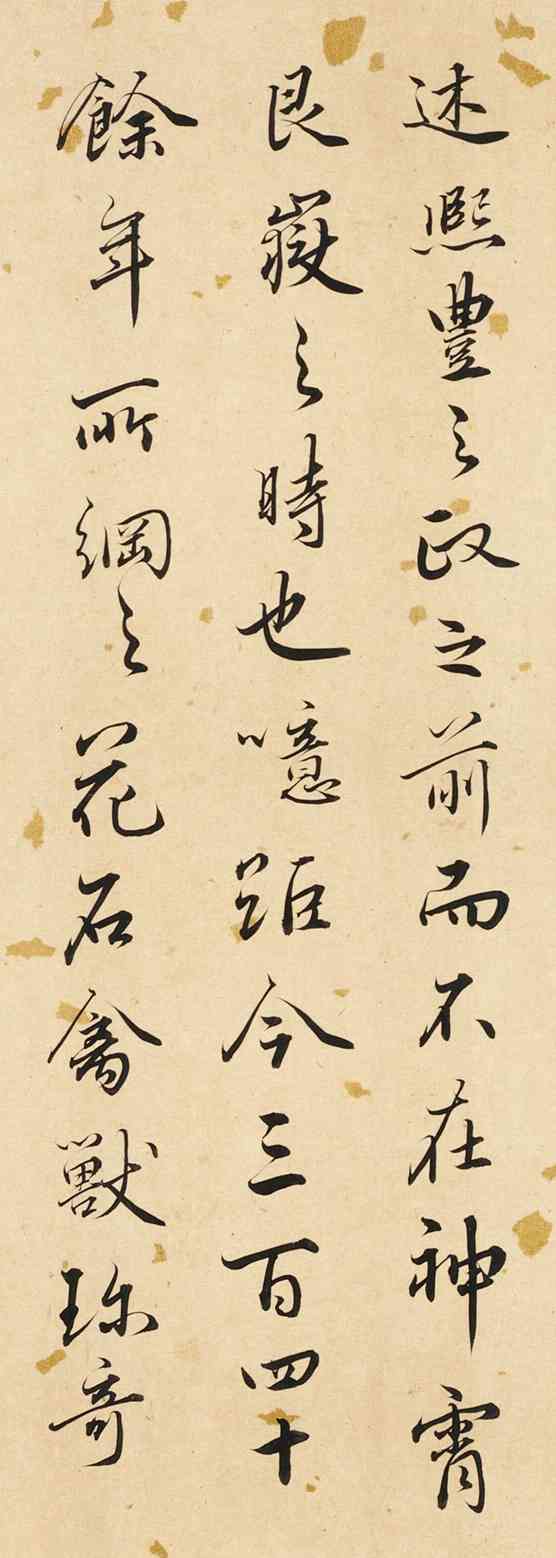 述熈豐之政之前而不在神霄
艮嶽之時也噫距今三百四十
餘年所綱之花石禽獸珎奇